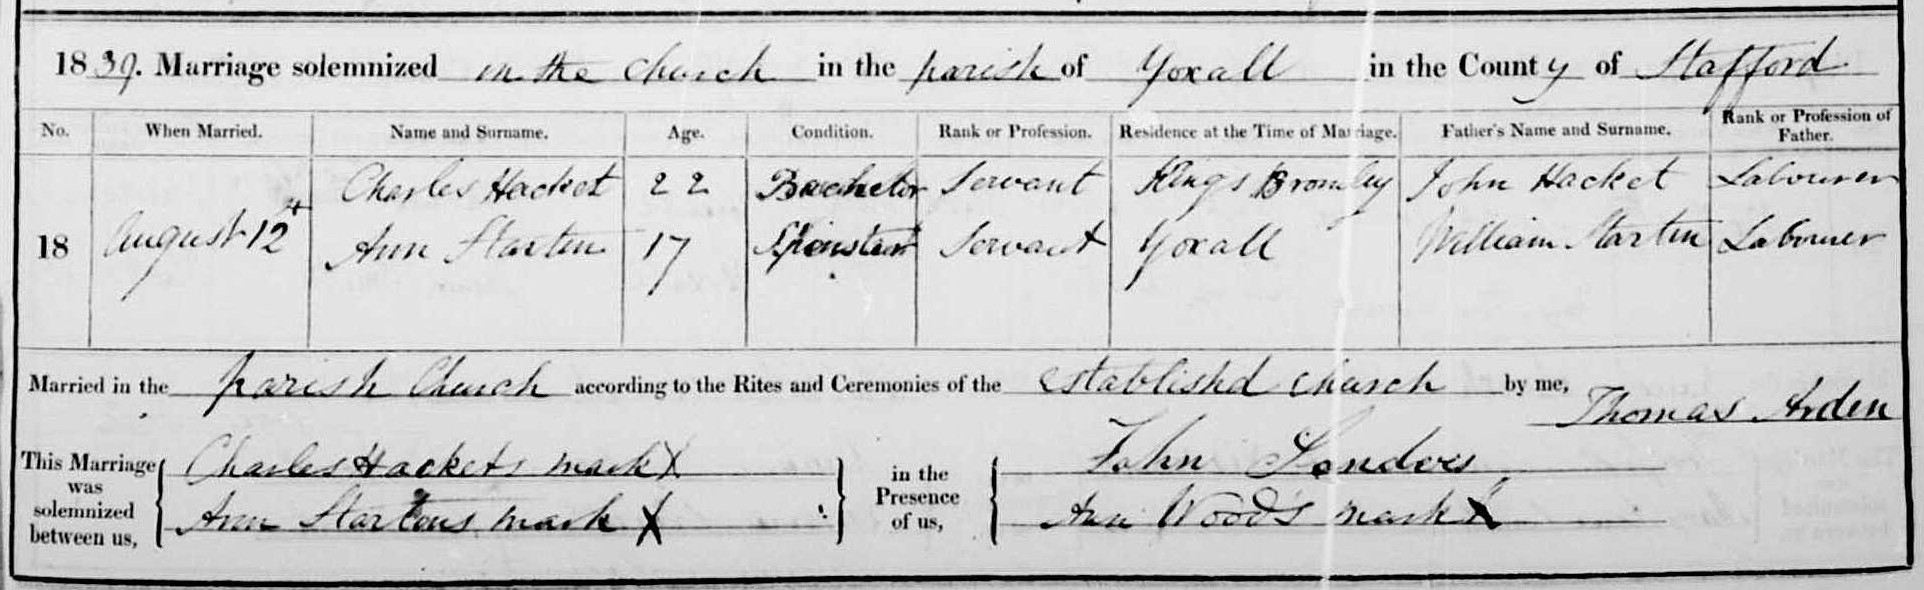 1839. Marriage solemnized in the church in the parish of Yoxall in the County of Stafford
No. When Married. Name and Surname. Age. Condition. Rank or Profession. Residence at the Time of Marriage. Father's Name and Surname. Rank or Profession of Father.
Charles Hacket 22 Bachelor Servant Kings Bromley John Hacket Labourer
18 August 12th Ann Startin 17 Spinster Servant Yoxall William Startin Labourer
Married in the parish Church according to the Rites and Ceremonies of the established church by me, Thomas Arden
This Marriage was solemnized between us, Charles Hackets mark X in the Presence of us, John Sanders
Ann Startens mark X Ann Wood's mark X